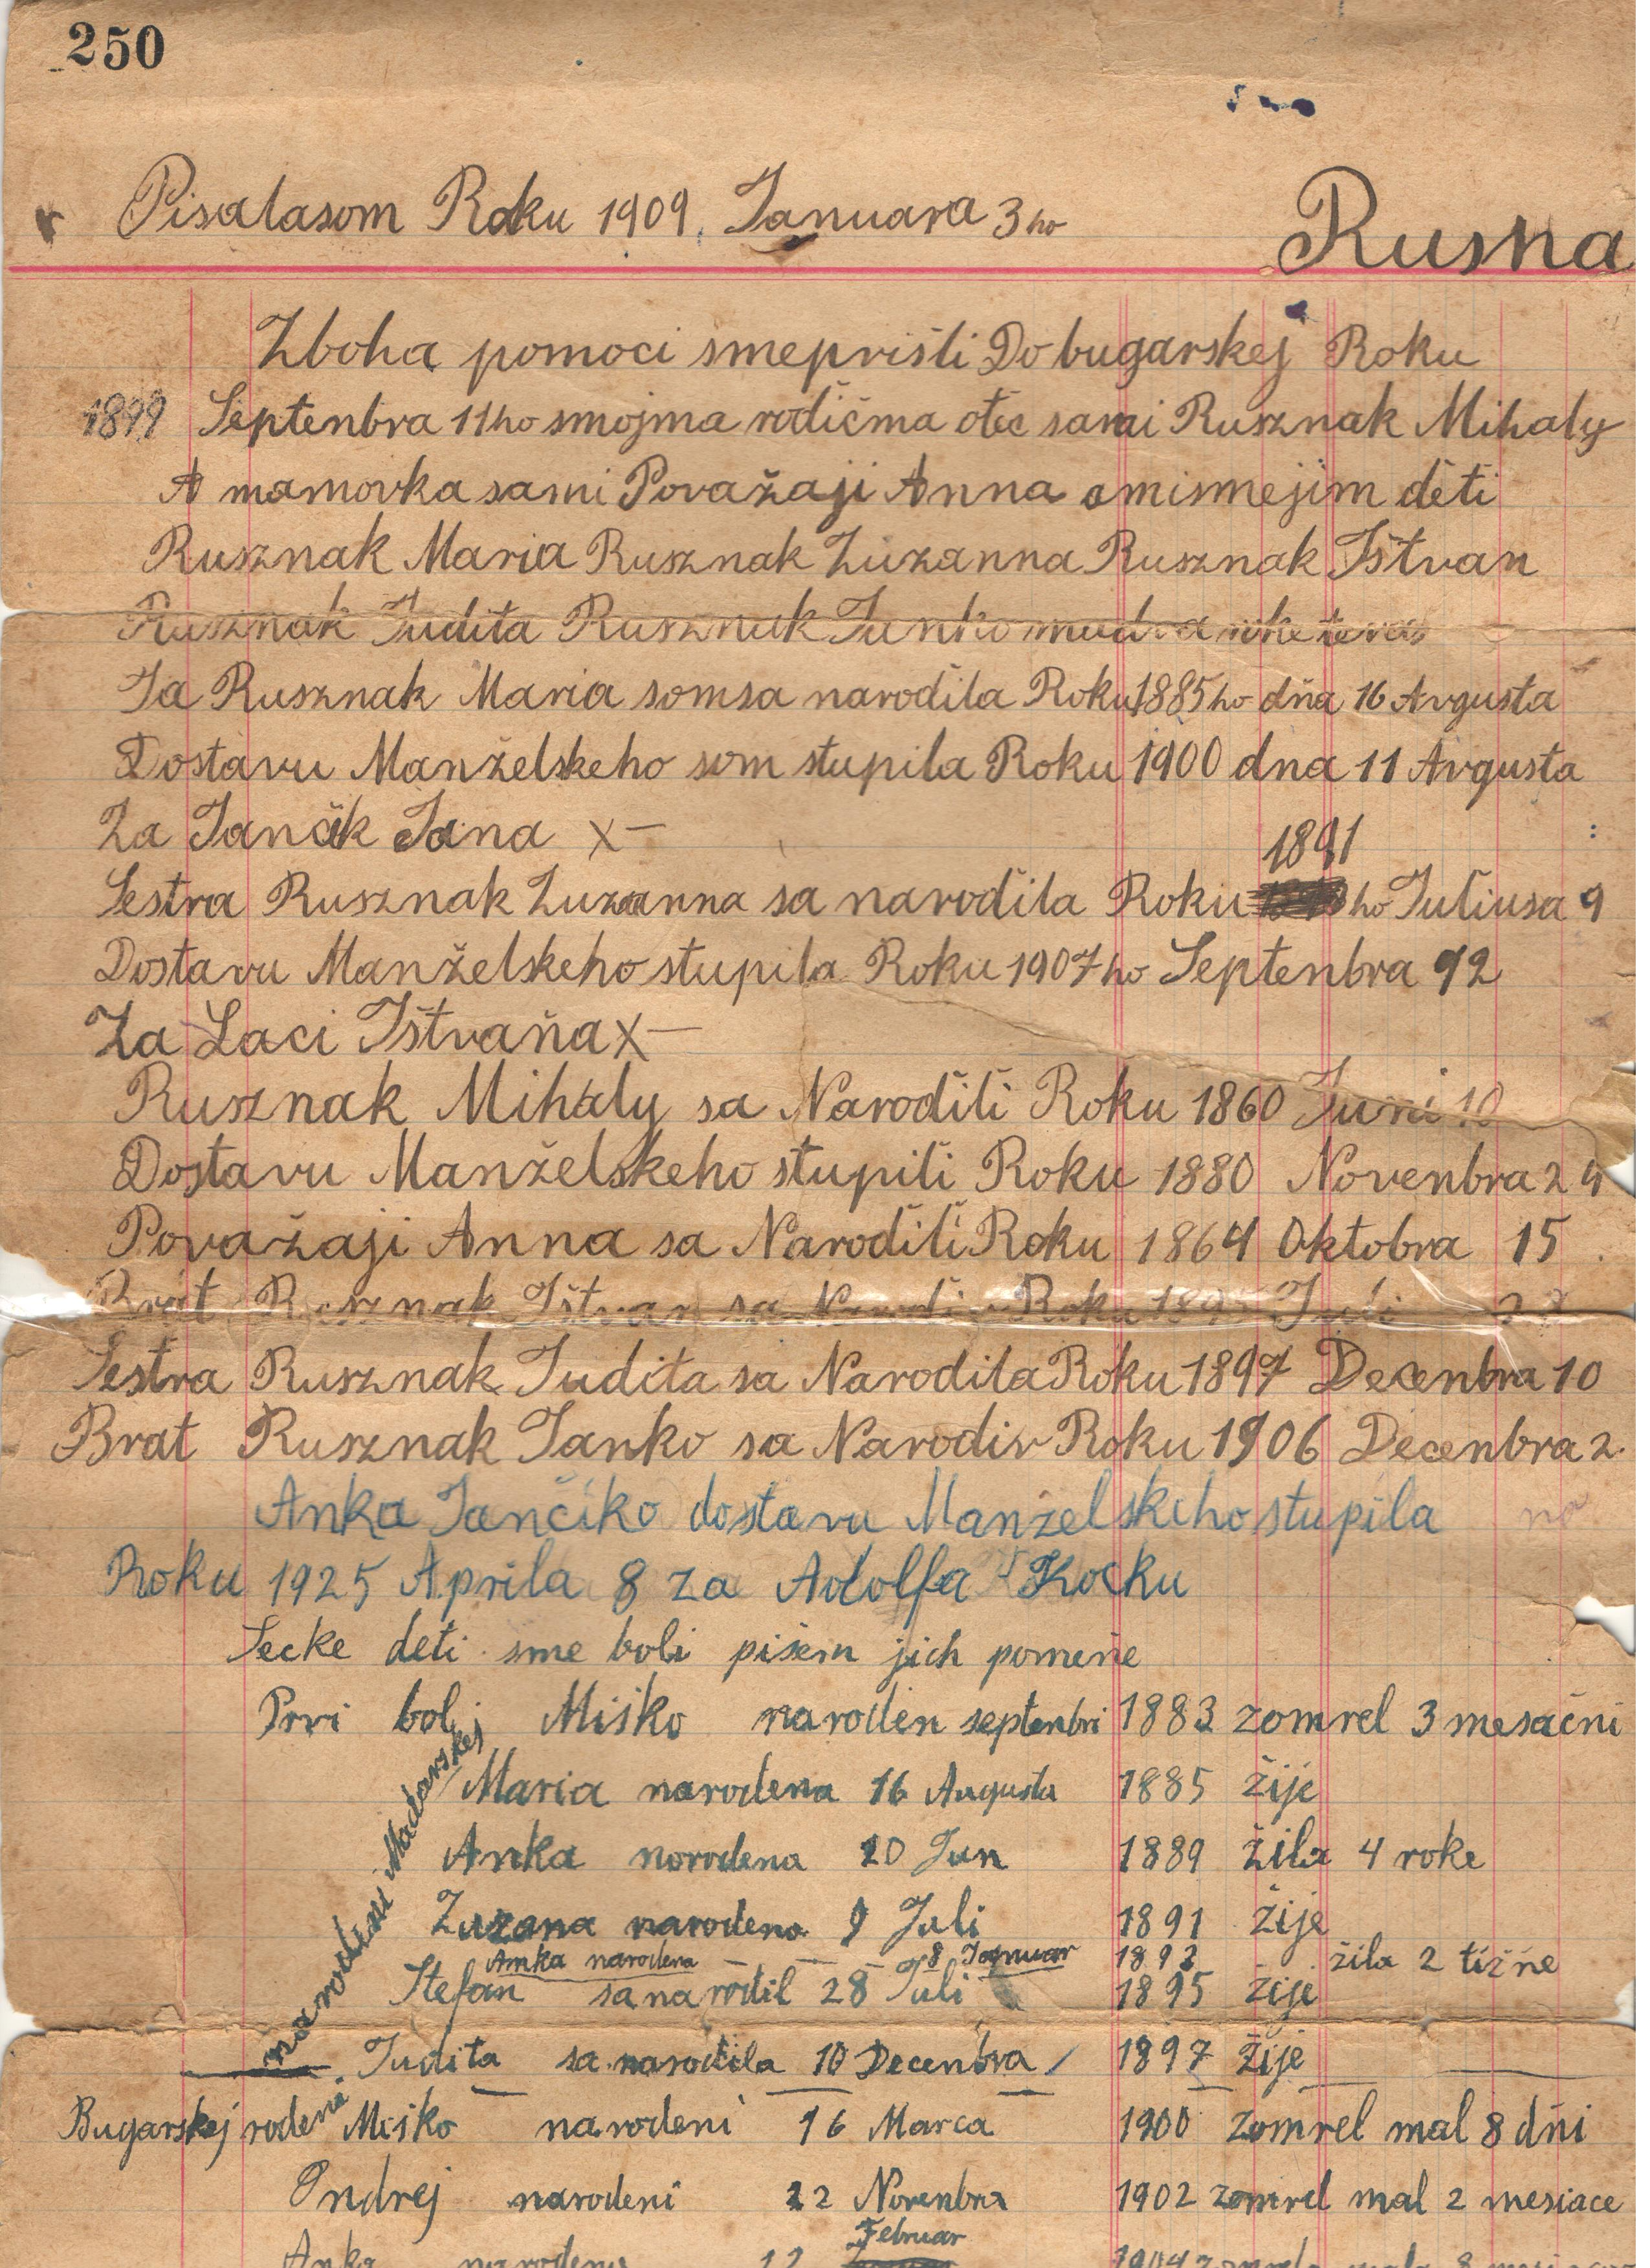 250
Pisalasom Roku 1909. Januara 3ho
Rusna
Zboha pomoci smeprišli Do bugarskej Roku
1899 Septenbra 11ho smojma rodičma otec sami Rusznak Mihaly
A mamovka sami Považaji Anna amismejim děti
Rusznak Maria Rusznak Zuzanna Rusznak Ištvan
Rusznak Judita Rusznak Janko
Ja Rusznak Maria somsa narodila Roku 1885ho dňa 16 Avgusta
Dostavu Manželskeho som stupila Roku 1900 dna 11 Avgusta
Za Jančik Jana x—
1891
Sestra Rusznak Zuzanna sa narodila Roku ho Juliusa 9
Dostavu Manželskeho stupila Roku 1907ho Septenbra 12
Za Laci Ištvaňa x—
Rusznak Mihály sa Narodili Roku 1860 Juni 10
Dostavu Manželskeho stupili Roku 1880 Novenbra 24
Považaji Anna sa Narodili Roku 1864 Oktobra 15
Brat Rusznak Ištvan sa Narodiv Roku Juli
Sestra Rusznak Judita sa Narodila Roku 1897 Decenbra 10
Brat Rusznak Janko sa Narodiv Roku 1906 Decenbra 2.
Anka Jančiko dostavu Manzelskeho stupila na
Roku 1925 Aprila 8 za Adolfa Kocku
Secke deti sme boli pišem jich pomeňe
Prvi bol Miško naroden septenbri 1883 zomrel 3 mesační
narodeni Madarskej
Maria narodena 16 Augusta 1885 žije
Anka norodena 20 Jun 1889 žila 4 roke
Zuzana narodena 9 Juli 1891 žije
Anka narodena — — 8 Januar 1893 žila 2 tižňe
Stefan sa narodil 28 Juli 1895 žije
Judita sa narodila 10 Decenbra 1897 žije
Bugarskej rodeňe. Miško narodeni 16 Marca 1900 zomrel mal 8 dňi
Ondrej narodeni 22 Novenbra 1902 zomrel mal 2 mesiace
Februar
Anka narodena 12 1904 zomrela mala 8